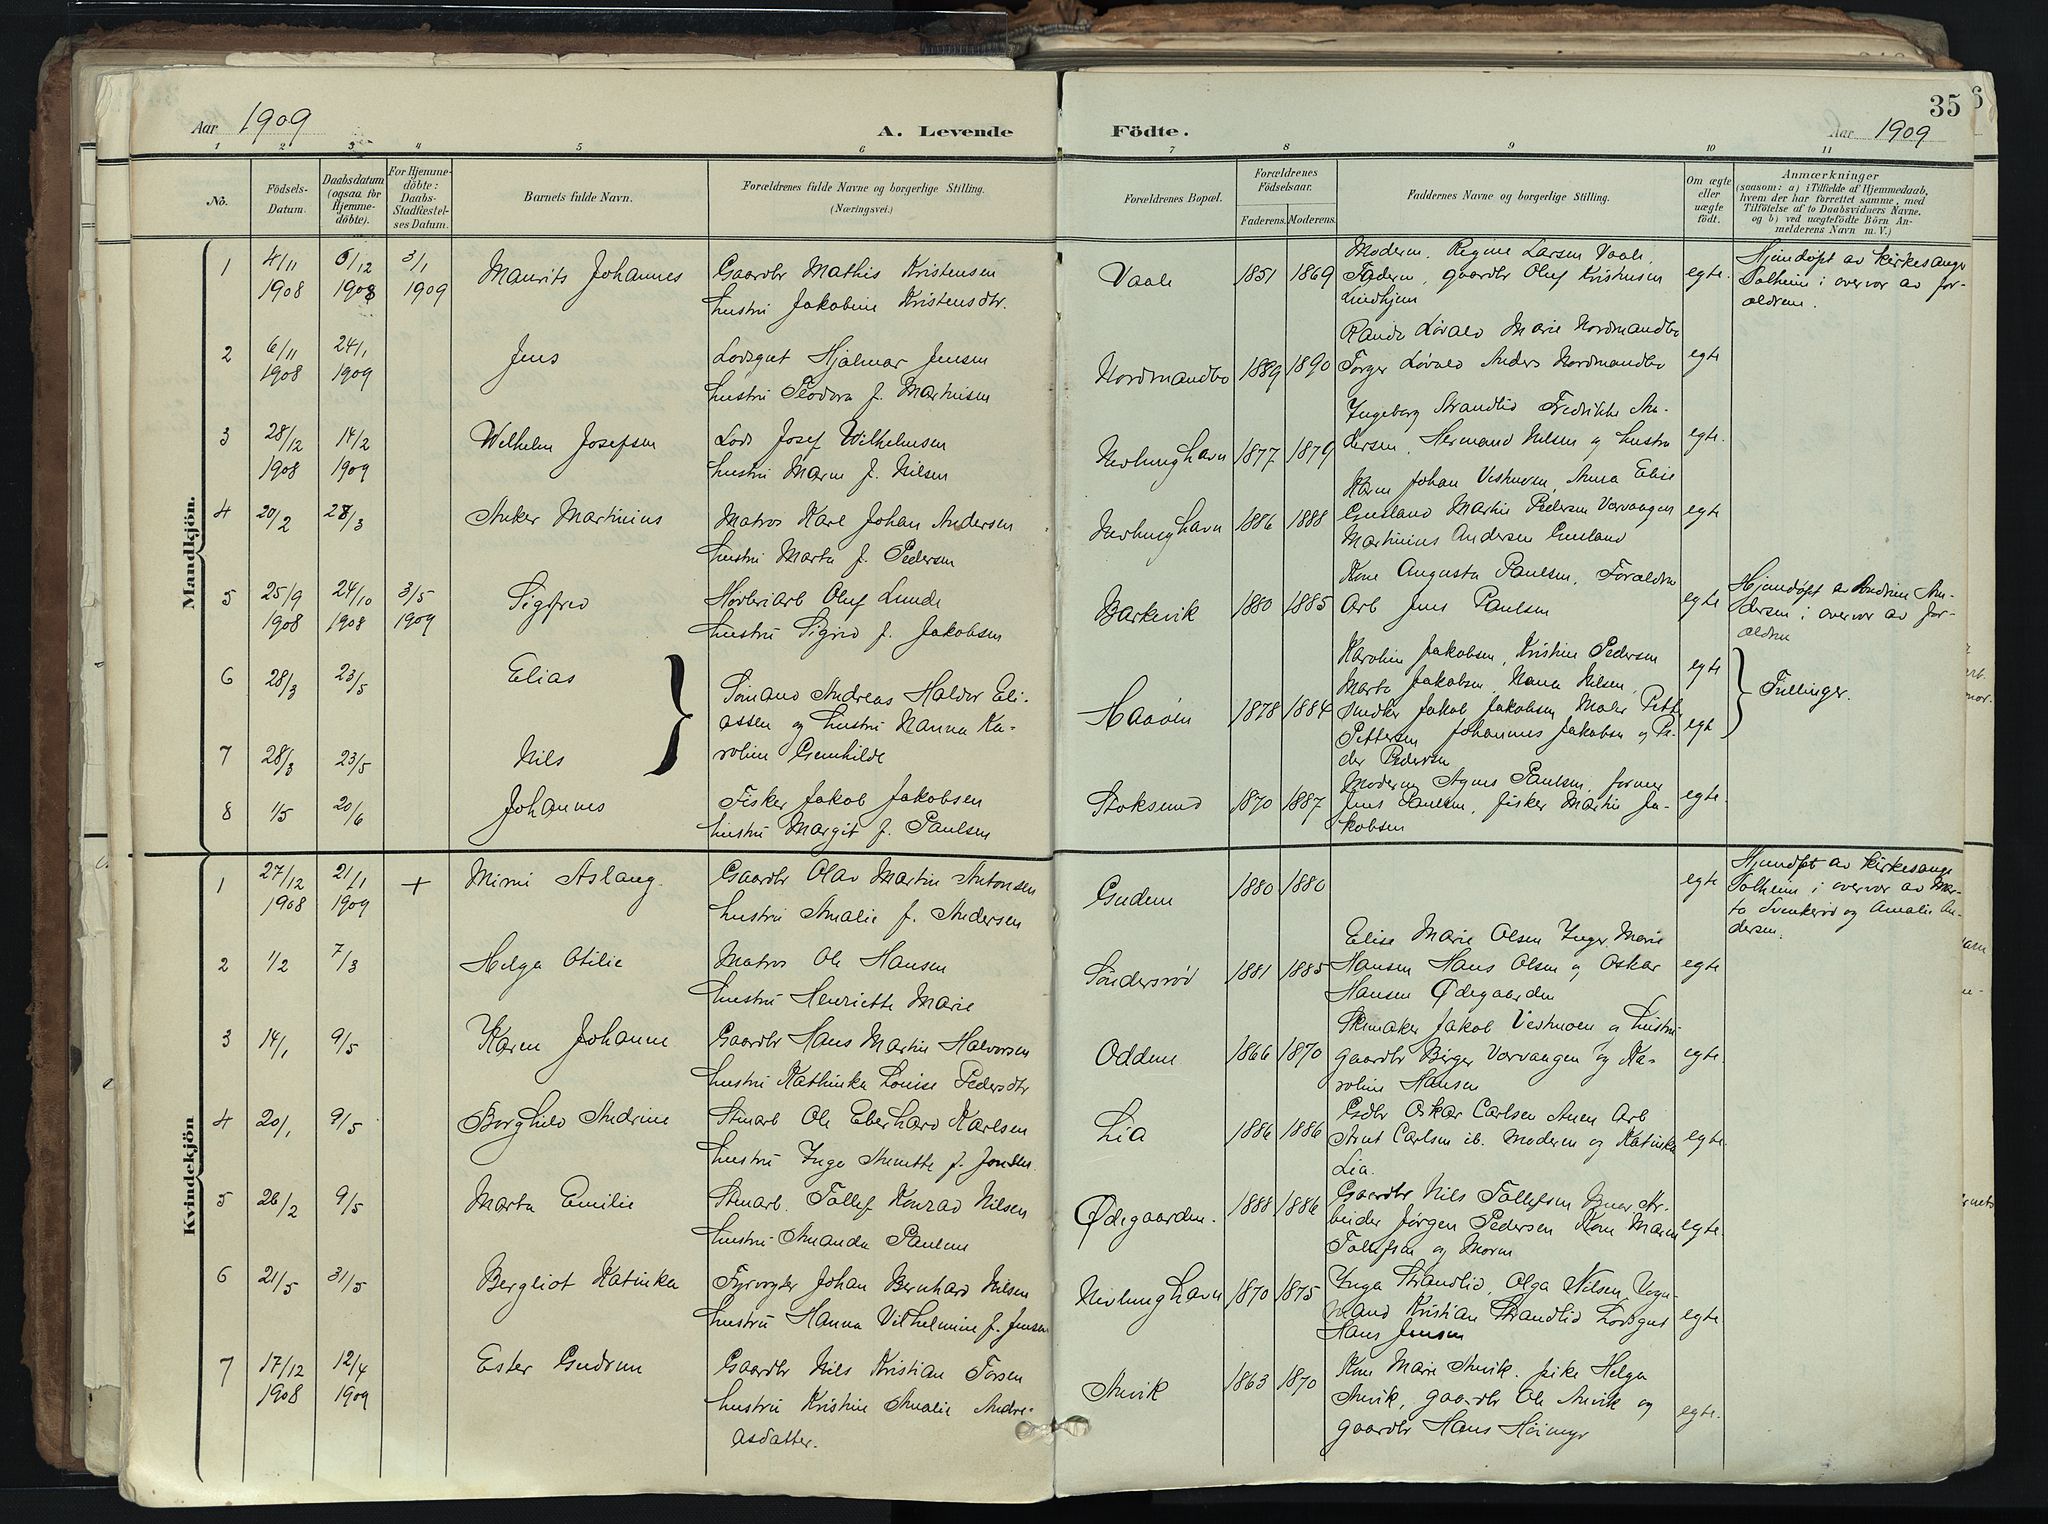 Aar 1909
A. Levende
Födte.
35
Aar 1909
1 2 3 4 5 6 7 8 9 10 11
No.
Födsels-
Datum.
Daabsdatum
(ogsaa for
Hjemme-
döbte).
For Hjemme-
döbte:
Daabs-
Stadfæstel-
ses Datum.
Barnets fulde Navn.
Forældrenes fulde Navne og borgerlige Stilling.
(Næringsvei.)
Forældrenes Bopæl.
Forældrenes
Födselsaar.
Faderens. Moderens.
Faddernes Navne og borgerlige Stilling.
Om ægte
eller
uægte
födt.
Anmærkninger
(saasom: a) i Tilfælde af Hjemmedaab,
hvem der har forrettet samme, med
Tilföielse af to Daabsvidners Navne.
og b) ved uægtefödte Börn An-
melderens Navn m. V.)
Mandkjön.
1 4/11 1908 6/12 1908 3/1 1909
Maurits Johannes
Gaardbr Mathis Kristensen
hustru Jakobine Kristensdtr.
Vaale 1851 1869
Moderen, Regine Larsen Vaale,
Faderen, gaardbr Oluf Kristensen
Lindhjem
egte.
Hjemdøpt av kirkesanger
Solheim i overvær av for-
ældrene.
2 6/11 1908 24/1 1909
Jens
Losgut Hjalmar Jensen
hustru Teodora f. Martinsen
Nordmandbo 1889 1890
Randi Løvald Marie Nordmandbo
Torger Løvald Anders Nordmandbo
egte
3 28/12 1908 14/2 1909
Wilhelm Josefsen
Lods Josef Wilhelmsen
hustru Maren f. Nilsen
Nevlunghavn 1877 1879
Ingeborg Strandlid Fredrikke An-
dersen, Hermand Nilsen og hustru
egte.
4 20/2 28/3
Anker Martinius
Matros Karl Johan Andersen
hustru Marta f. Pedersen
Nevlunghavn 1886 1888
Karen Johan Vestmoen, Anna Elise
Gusland Martin Pedersen Varvaagen
Martinius Andersen Gusland
egte
5 25/9 1908 24/10 1908 3/5 1909
Sigfred
Høvleriarb Oluf Lunde
hustru Sigrid f. Jakobsen
Barkevik 1880 1885
Kone Augusta Paulsen, Forældrene
Arb Jens Paulsen
egte
Hjemdøpt av Andrine An-
dersen i overvær av for-
ældrene
6 28/3 23/5
Elias
7 28/3 23/5
Nils
Sømand Andreas Haldor Eli-
assen og hustru Nanna Ka-
roline Gunhilde
Haaøen 1878 1884
Karolin Jakobsen, Kristine Pedersen
Marta Jakobsen, Nanna Nilsen,
Snedker Jakob Jakobsen Maler Pett
Pettersen Johannes Jakobsen og Pe-
der Pedersen
egte
egte
Tvillinger.
8 1/5 20/6
Johannes
Fisker Jakob Jakobsen
hustru Margit f. Paulsen
Stoksund 1870 1887
Moderen, Agnes Paulsen, former
Jens Paulsen, fisker Martin Ja-
kobsen
egte.
Kvindekjön
1 27/12 1908 21/1 1909 +
Mimi Aslaug.
Gaardbr Olav Martin Antonsen
hustru Amalie f. Andersen
Gudem 1880 1880
egte
Hjemdøpt av kirkesanger
Solheim i overvær av Mar-
ta Svenkerød og Amalie An-
dersen.
2 1/2 7/3
Helga Otilie
Matros Ole Hansen
hustru Henriette Marie
Söndersrød 1881 1885
Elise Marie Olsen Inger Marie
Hansen Hans Olsen og Oskar
Hansen Ødegaarden
egte
3 14/1 9/5
Karen Johanne
Gaardbr Hans Martin Halvorsen
hustru Kathinka Louise Pedersdtr
Oddene 1866 1870
Skomaker Jakob Vestmoen og hustru
gaardbr Birger Varvaagen og Ka-
roline Hansen
egte.
4 20/1 9/5
Borghild Andrine
Stenarb Ole Eberhard Karlsen
hustru Inga Annette f. Jonsen.
Lia 1886 1886
Gdbr Oskar Carlsen Anen Arb
Arnt Carlsen ib. Moderen og Katinka
Lia.
egte.
5 26/2 9/5
Marta Emilie
Stenarb. Tollef Konrad Nilsen
hustru Amanda Paulsen
Ødegaarden. 1888 1886
Gaardbr Nils Tollefsen Ar-
beider Jørgen Pedersen Kone Maren
Tollefsen og Moren
egte.
6 21/5 31/5
Bergliot Katinka
Fyrvogter Johan Bernhard Nilsen
hustru Hanna Vilhelmine f. Jensen
Nevlunghavn 1870 1875
Inga Strandlid, Olga Nilsen, Vogn-
mand Kristian Strandlid Losgut
Hans Jensen
egte.
7 17/12 1908 12/4 1909
Ester Gudrun
Gaardbr Nils Kristian Torsen
hustru Kristine Amalie Andre-
asdatter.
Anvik 1863 1870
Kone Marie Anvik. pike Helga
Anvik, gaardbr Ole Anvik og
gaardbr Hans Høimyr
egte.